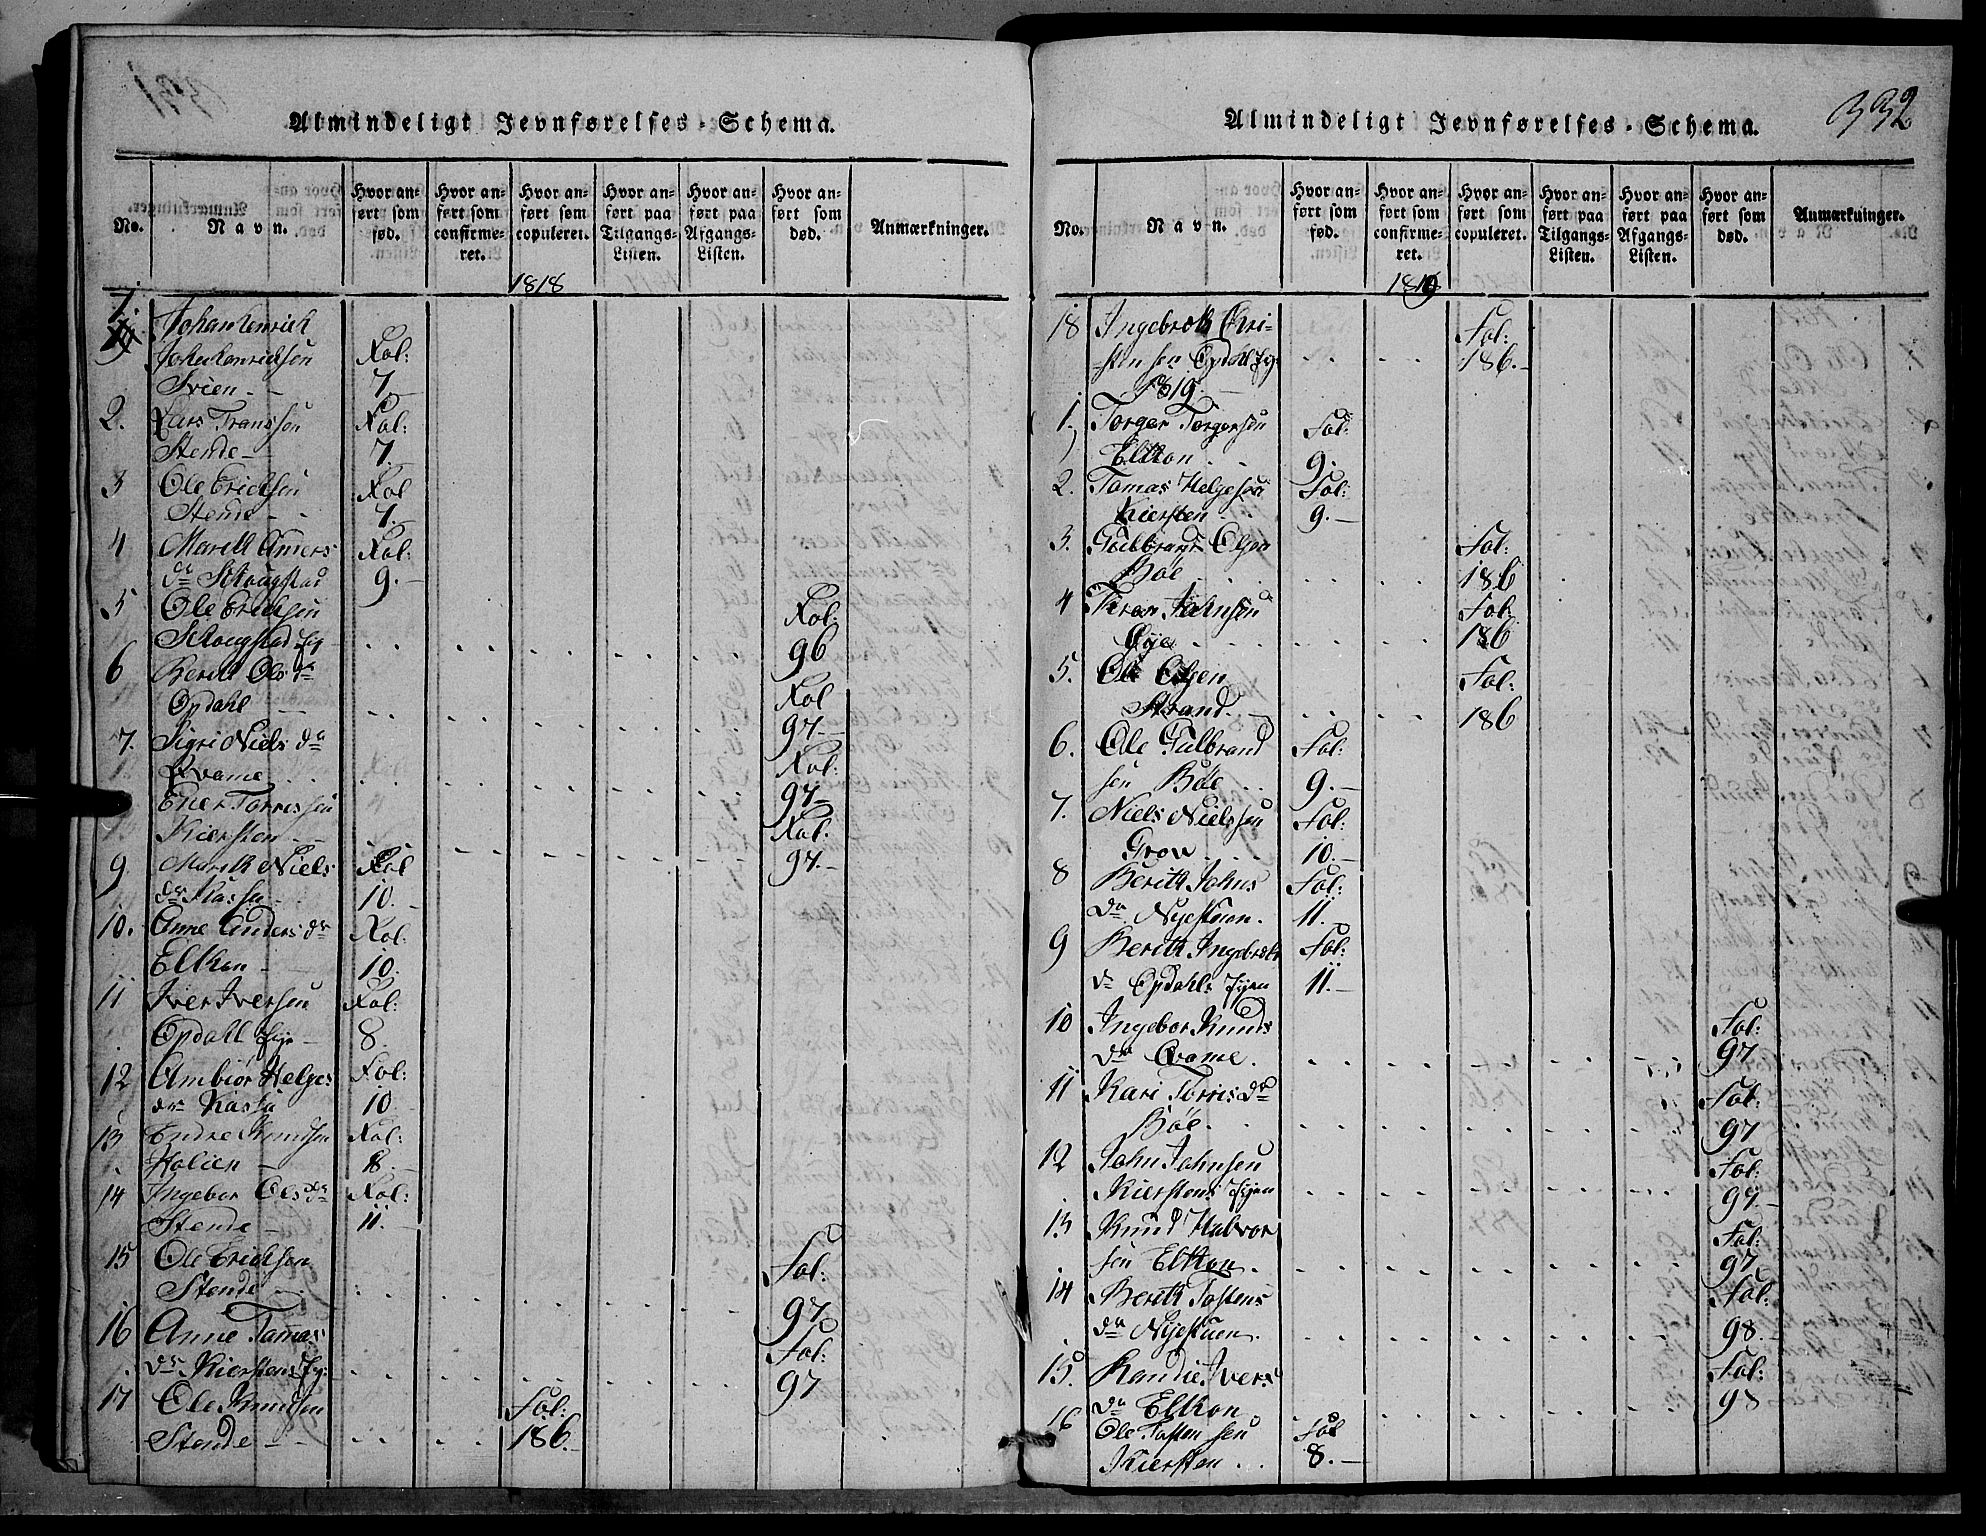 Almindeligt Jevnførelses-Schema.
No. Navn. Hvor anført som fød. Hvor anført som confirmeret. Hvor anført som copuleret. Hvor anført paa Tilgangs-Listen. Hvor anført paa Afgangs-Listen. Hvor anført som død. Anmærkninger.
1818
1. Johan Henrick
Johanhenricksen Fol:
Svien - - 7.
2. Lars Franssen Fol:
Stende - - 7.
3 Ole Ericksen Fol
Stende - 7.
4 Marith Anners Fol:
dr Schougstad 9. -
5 Ole Ericksen Fol:
Schougstad Ey 96
6 Berith Ols dr Fol
Opdahl - 97 -
7. Sigri Niels dr Fol:
Qvame 97 -
Ener Torressen Fol:
Kiersten - - 97. -
9 Marith Niels Fol
dr Kassa 10. -
10. Anne Anders dr Fol:
Elken - 10.
11 Iver Iversen Fol:
Opdahl Eje - 8.
12 Ambiør Helges Fol:
dr Kassa 10
13 Endre Knudsen Fol:
Halien - 8. -
14 Ingebor Ols dr Fol:
Stende - 11. -
15 Ole Ericksen Fol:
Stende 97.
16 Anne Tamas Fol:
dr Kierstens Ey: 97
17 Ole Knudsen Fol:
Stende - - 186. -
332
Almindeligt Jevnførelses-Schema.
No. Navn. Hvor anført som fød. Hvor anført som confirmeret. Hvor anført som copuleret. Hvor anført paa Tilgangs-Listen. Hvor anført paa Afgangs-Listen. Hvor anført som død. Anmærkninger.
1819
18 Ingebreth Chri- Fol:
stensen Opdahl Ey: 186. -
1819 -
1. Torger Torgersen Fol:
Elken 9.
2. Tamas Helgesen Fol:
Kiersten 9. -
3. Gulbrand Olsen Fol:
Böe 186
4 Johnsen Fol:
Øye 186
5. Ole Olsen Fol:
Strand. - 186
6. Ole Gulbrand Fol:
sen Böe 9. -
7. Niels Nielssen Fol:
Grov 10. -
8 Berith Johns Fol:
dr Nyestuen. 11. -
9 Berith Ingebreth Fol:
dr Opdahls Eyen 11. -
10 Ingebor Knuds Fol:
dr Qvame. 97
11 Kari Torris dr Fol:
Böe. 97
12 John Johnsen Fol:
Kierstens Eyen 97. -
13 Knud Halvor Fol:
sen Elken. 97
14 Berith Tostens Fol:
dr Nyestuen. 98. -
15. Randie Ivers Fol:
dr Elken 98
16 Ole Tostensen Fol
Kiersten 8. -